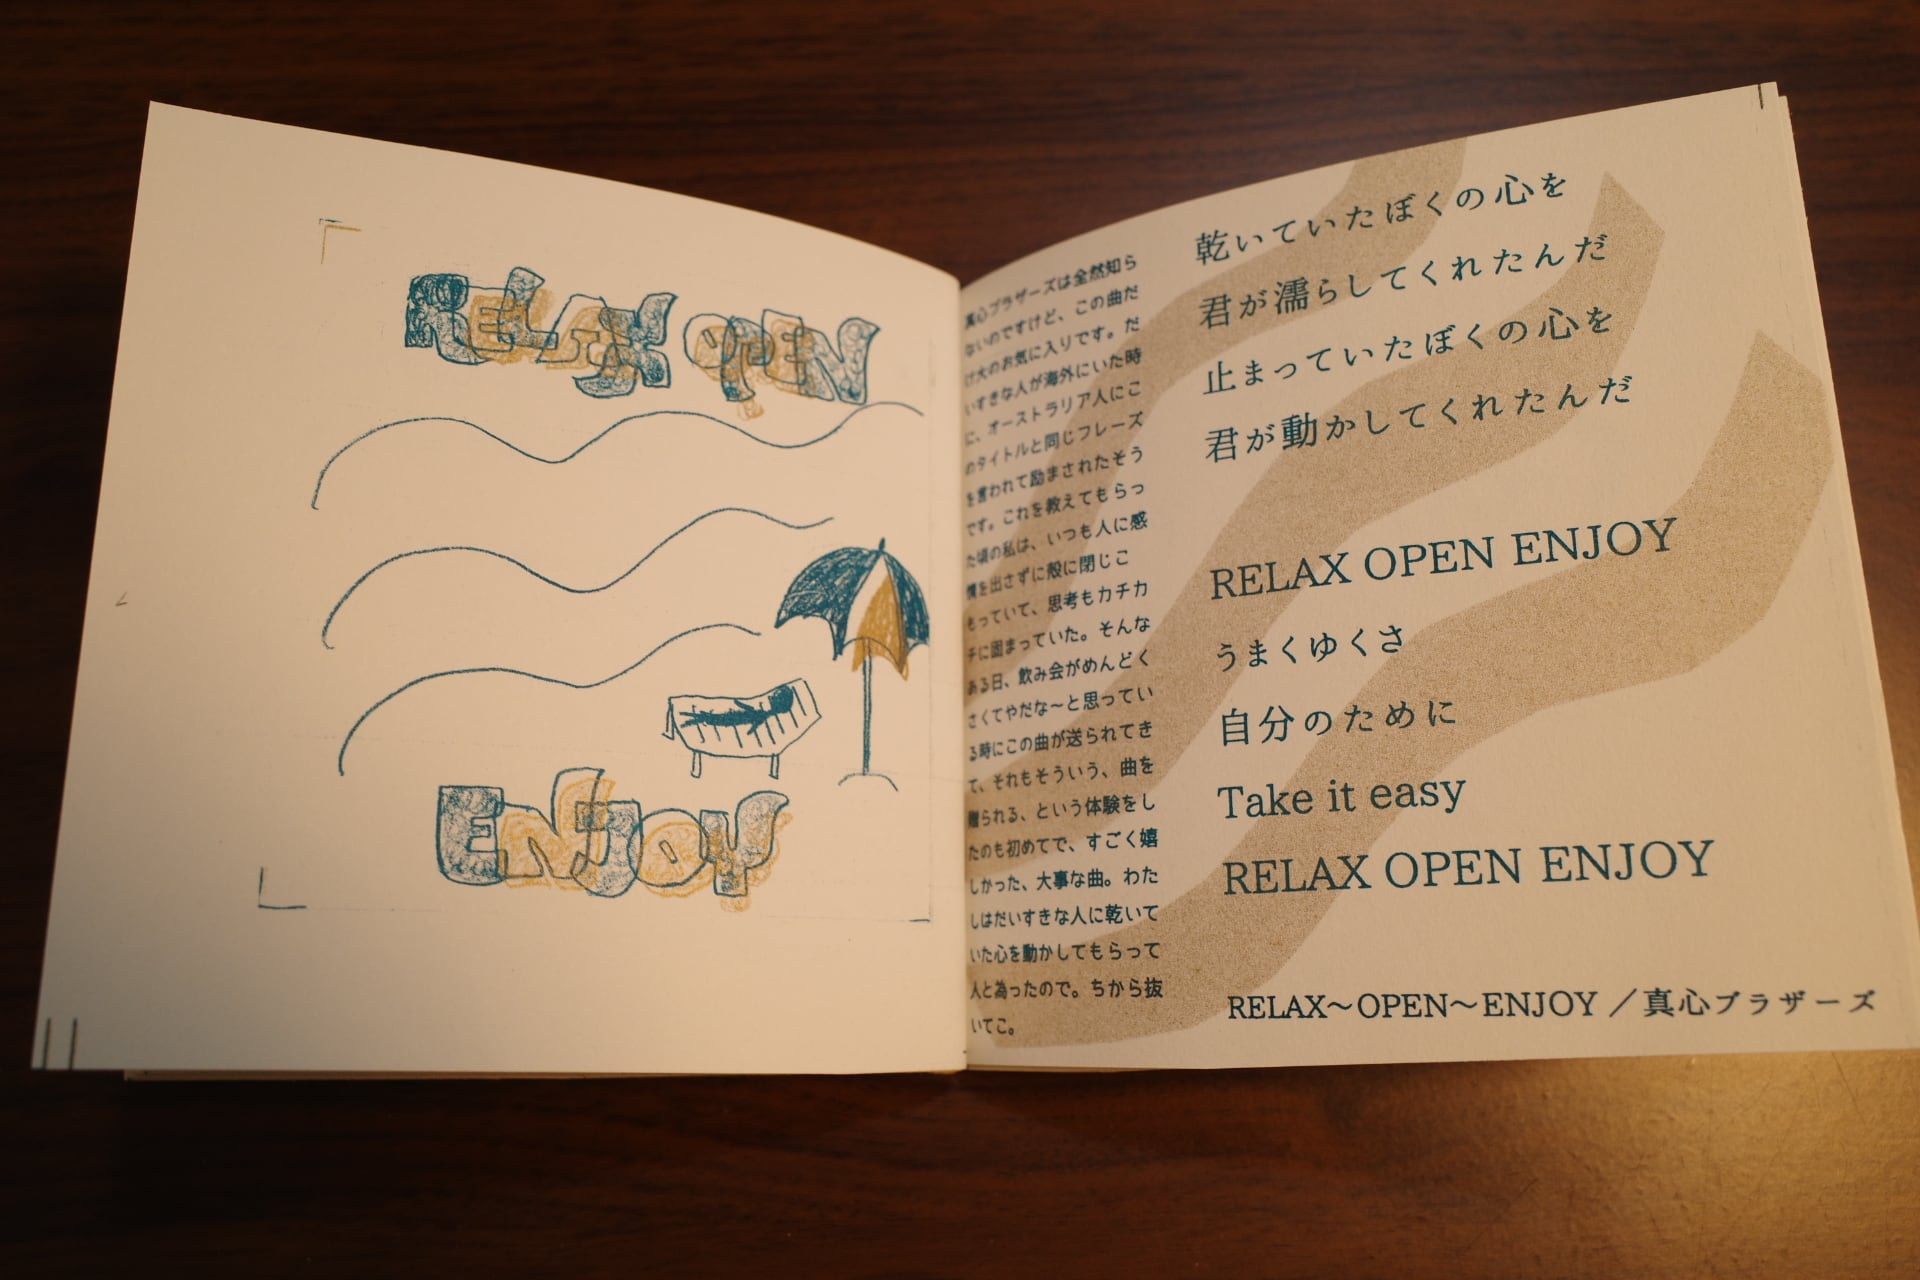 RELAX OPEN
ENJOY
真心ブラザーズは全然知ら
ないのですけど、この曲だ
け大のお気に入りです。だ
いすきな人が海外にいた時
に、オーストラリア人にこ
のタイトルと同じフレーズ
を言われて励まされたそう
です。これを教えてもらっ
た頃の私は、いつも人に感
情を出さずに殻に閉じこ
もっていて、思考もカチカ
チに固まっていた。そんな
ある日、飲み会がめんどく
さくてやだな〜と思ってい
る時にこの曲が送られてき
て、それもそういう、曲を
贈られる、という体験をし
たのも初めてで、すごく嬉
しかった、大事な曲。わた
しはだいすきな人に乾いて
いた心を動かしてもらって
人と為ったので。ちから抜
いてこ。
乾いていたぼくの心を
君が濡らしてくれたんだ
止まっていたぼくの心を
君が動かしてくれたんだ
RELAX OPEN ENJOY
うまくゆくさ
自分のために
Take it easy
RELAX OPEN ENJOY
RELAX〜OPEN〜ENJOY／真心ブラザーズ